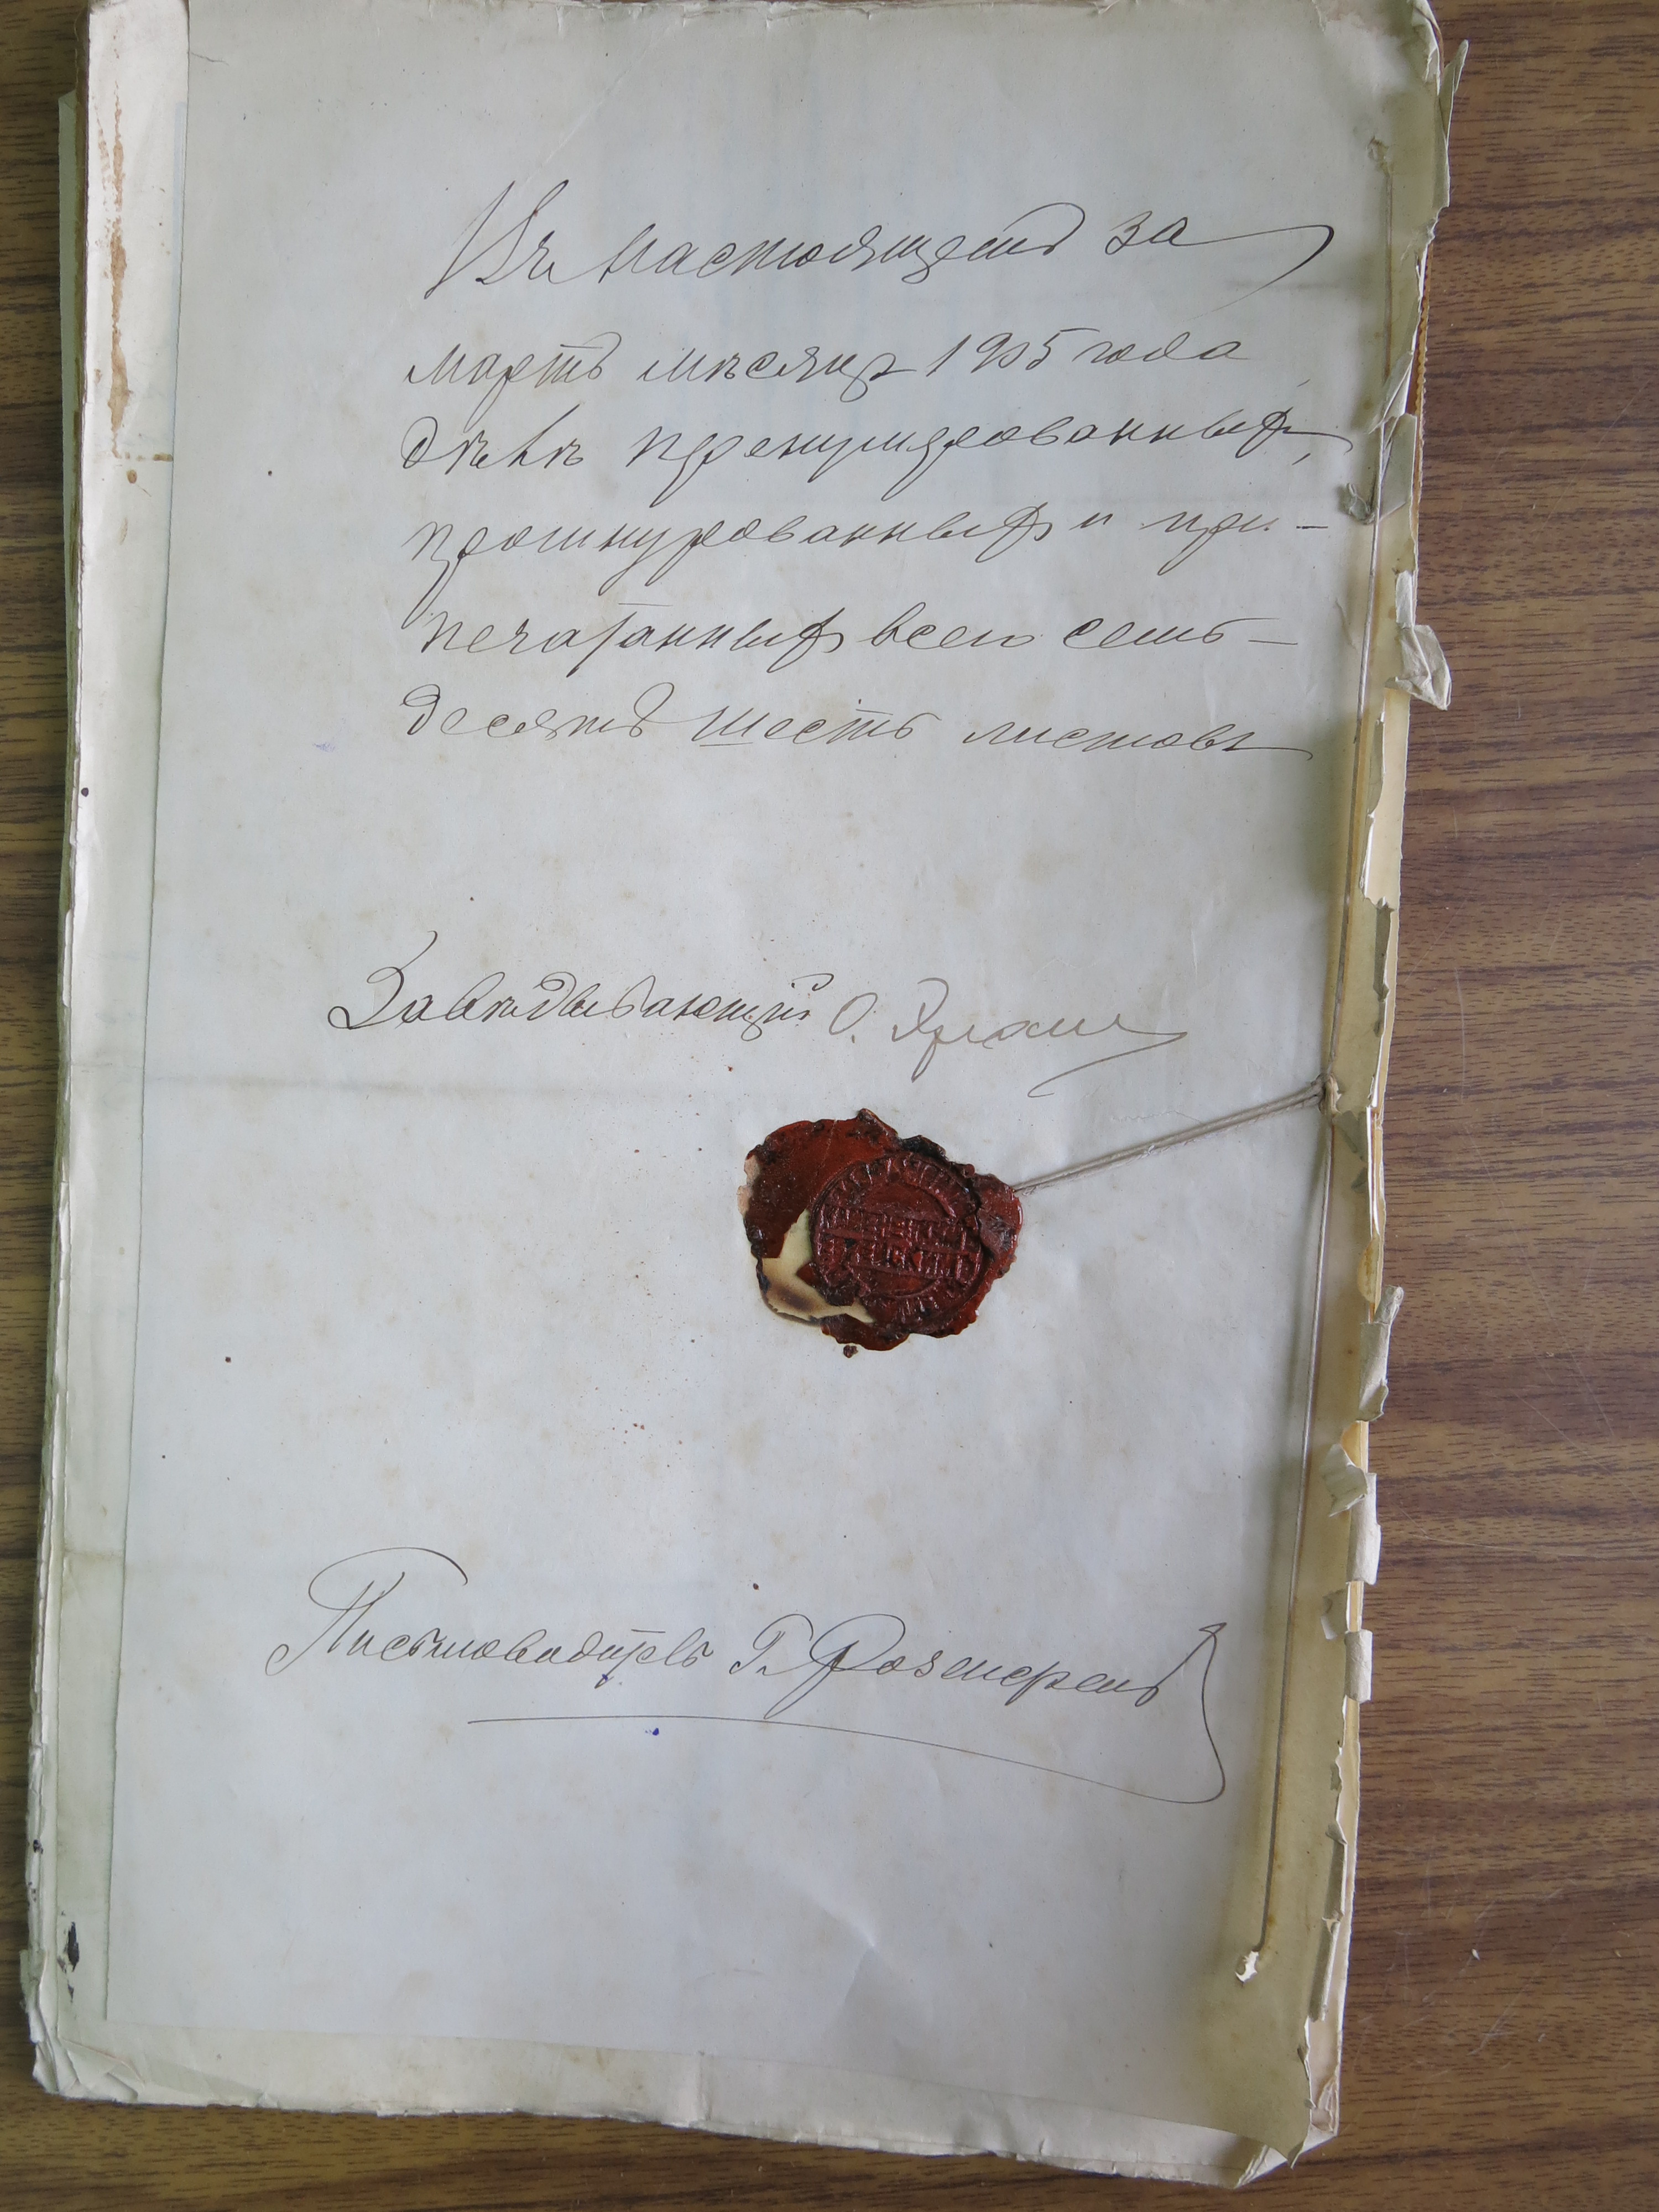 Въ настоящемъ за
мартъ мѣсяцъ 1905 года
дѣлѣ пренумерованныхъ,
прошнурованныхъ и при-
печатанныхъ всего семь-
десятъ шесть листовъ
Завѣдывающій О.
Письмоводитель Г. Розенкрейнъ